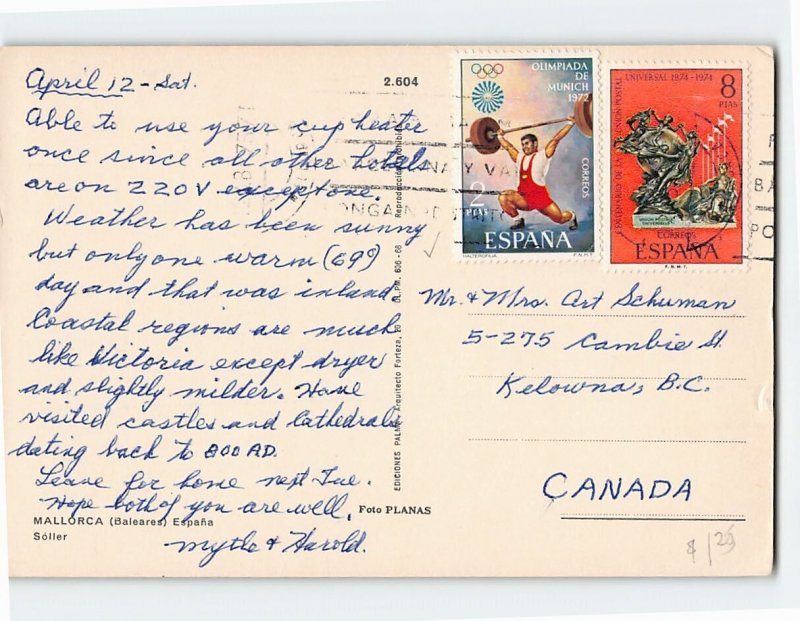 April 12 - Sat.
Able to use your cup heater
once since all other hotels
are on 220V except one.
Weather has been sunny
but only one warm (69°)
day and that was inland.
Coastal regions are much
like Victoria except dryer
and slightly milder. Have
visited castles and Cathedrals
dating back to 800 AD.
Leave for home next Tue.
Hope both of you are well.
Myrtle & Harold.
MALLORCA (Baleares) España
Sóller
Foto PLANAS
2.604
EDICIONES PALMA - Arquitecto Forteza,
DL.PM. 606-68
Reproducción prohibida
OLIMPIADA
DE
MUNICH
1972
2
PTAS
CORREOS
ESPAÑA
HALTEROFILIA
F.N.M.T.
CENTENARIO DE LA UNION POSTAL
UNIVERSAL 1874-1974
8
PTAS
CORREOS
ESPAÑA
F.N.M.T.
Mr. & Mrs. Art Schuman
5-275 Cambie St.
Kelowna, B.C.
CANADA